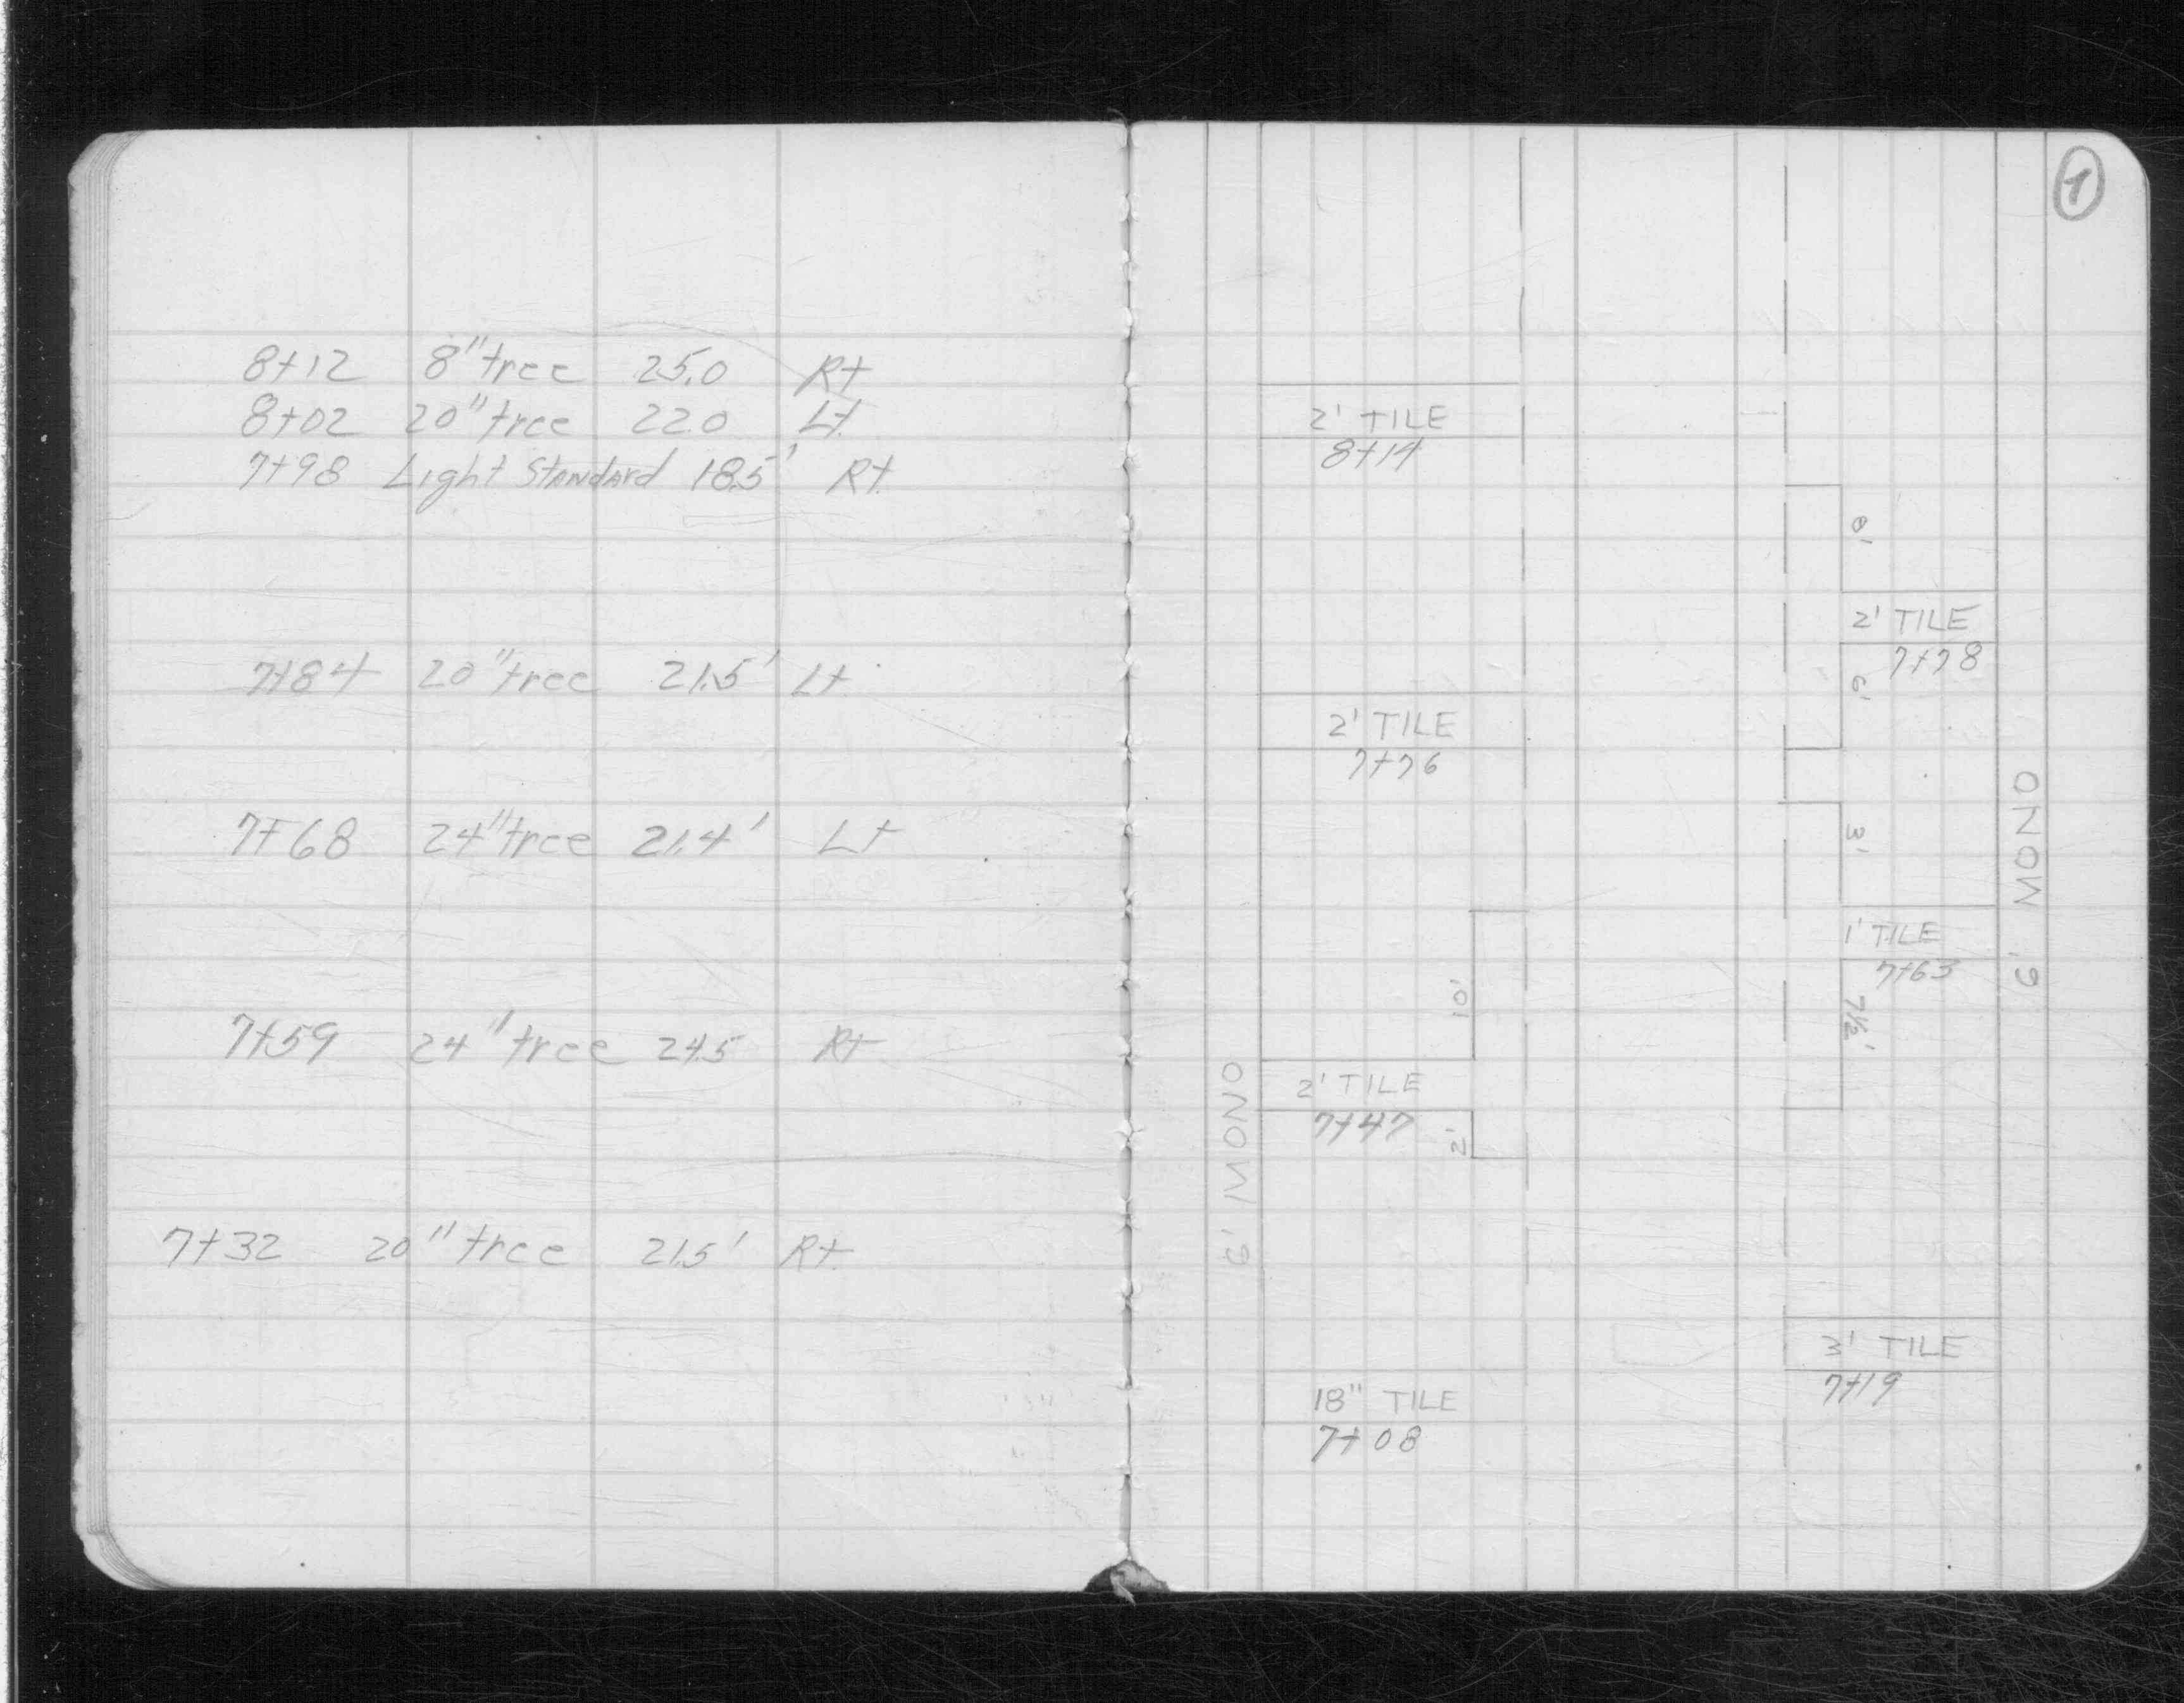 8+12 8" tree 25.0 Rt
8+02 20" tree 22.0 Lt.
7+98 Light Standard 18.5' Rt.
7+84 20" tree 21.5' Lt.
7+68 24" tree 21.4' Lt
7+59 24" tree 24.5 Rt
7+32 20" tree 21.5' Rt.
1
2' TILE
8+14
2' TILE
7+78
6'
2' TILE
7+76
3'
1' TILE
7+63
7½'
10'
2' TILE
7+47
2'
6' MONO
6' MONO
3' TILE
7+19
18" TILE
7+08